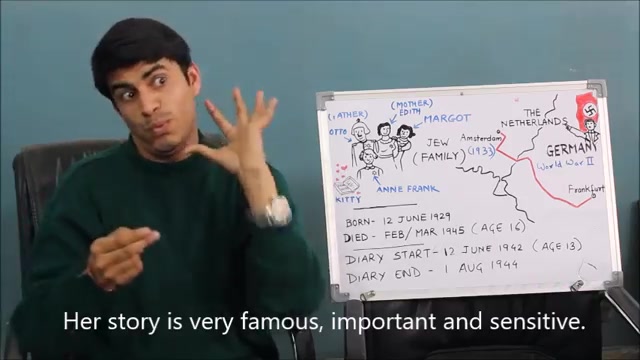 (FATHER)
OTTO
(MOTHER)
EDITH
MARGOT
ANNE FRANK
KITTY
JEW
(FAMILY)
THE
NETHERLANDS
Amsterdam
(1933)
GERMANY
World War II
Frankfurt
BORN- 12 JUNE 1929
DIED- FEB/MAR 1945 (AGE 16)
DIARY START- 12 JUNE 1942 (AGE 13)
DIARY END - 1 AUG 1944
Her story is very famous, important and sensitive.